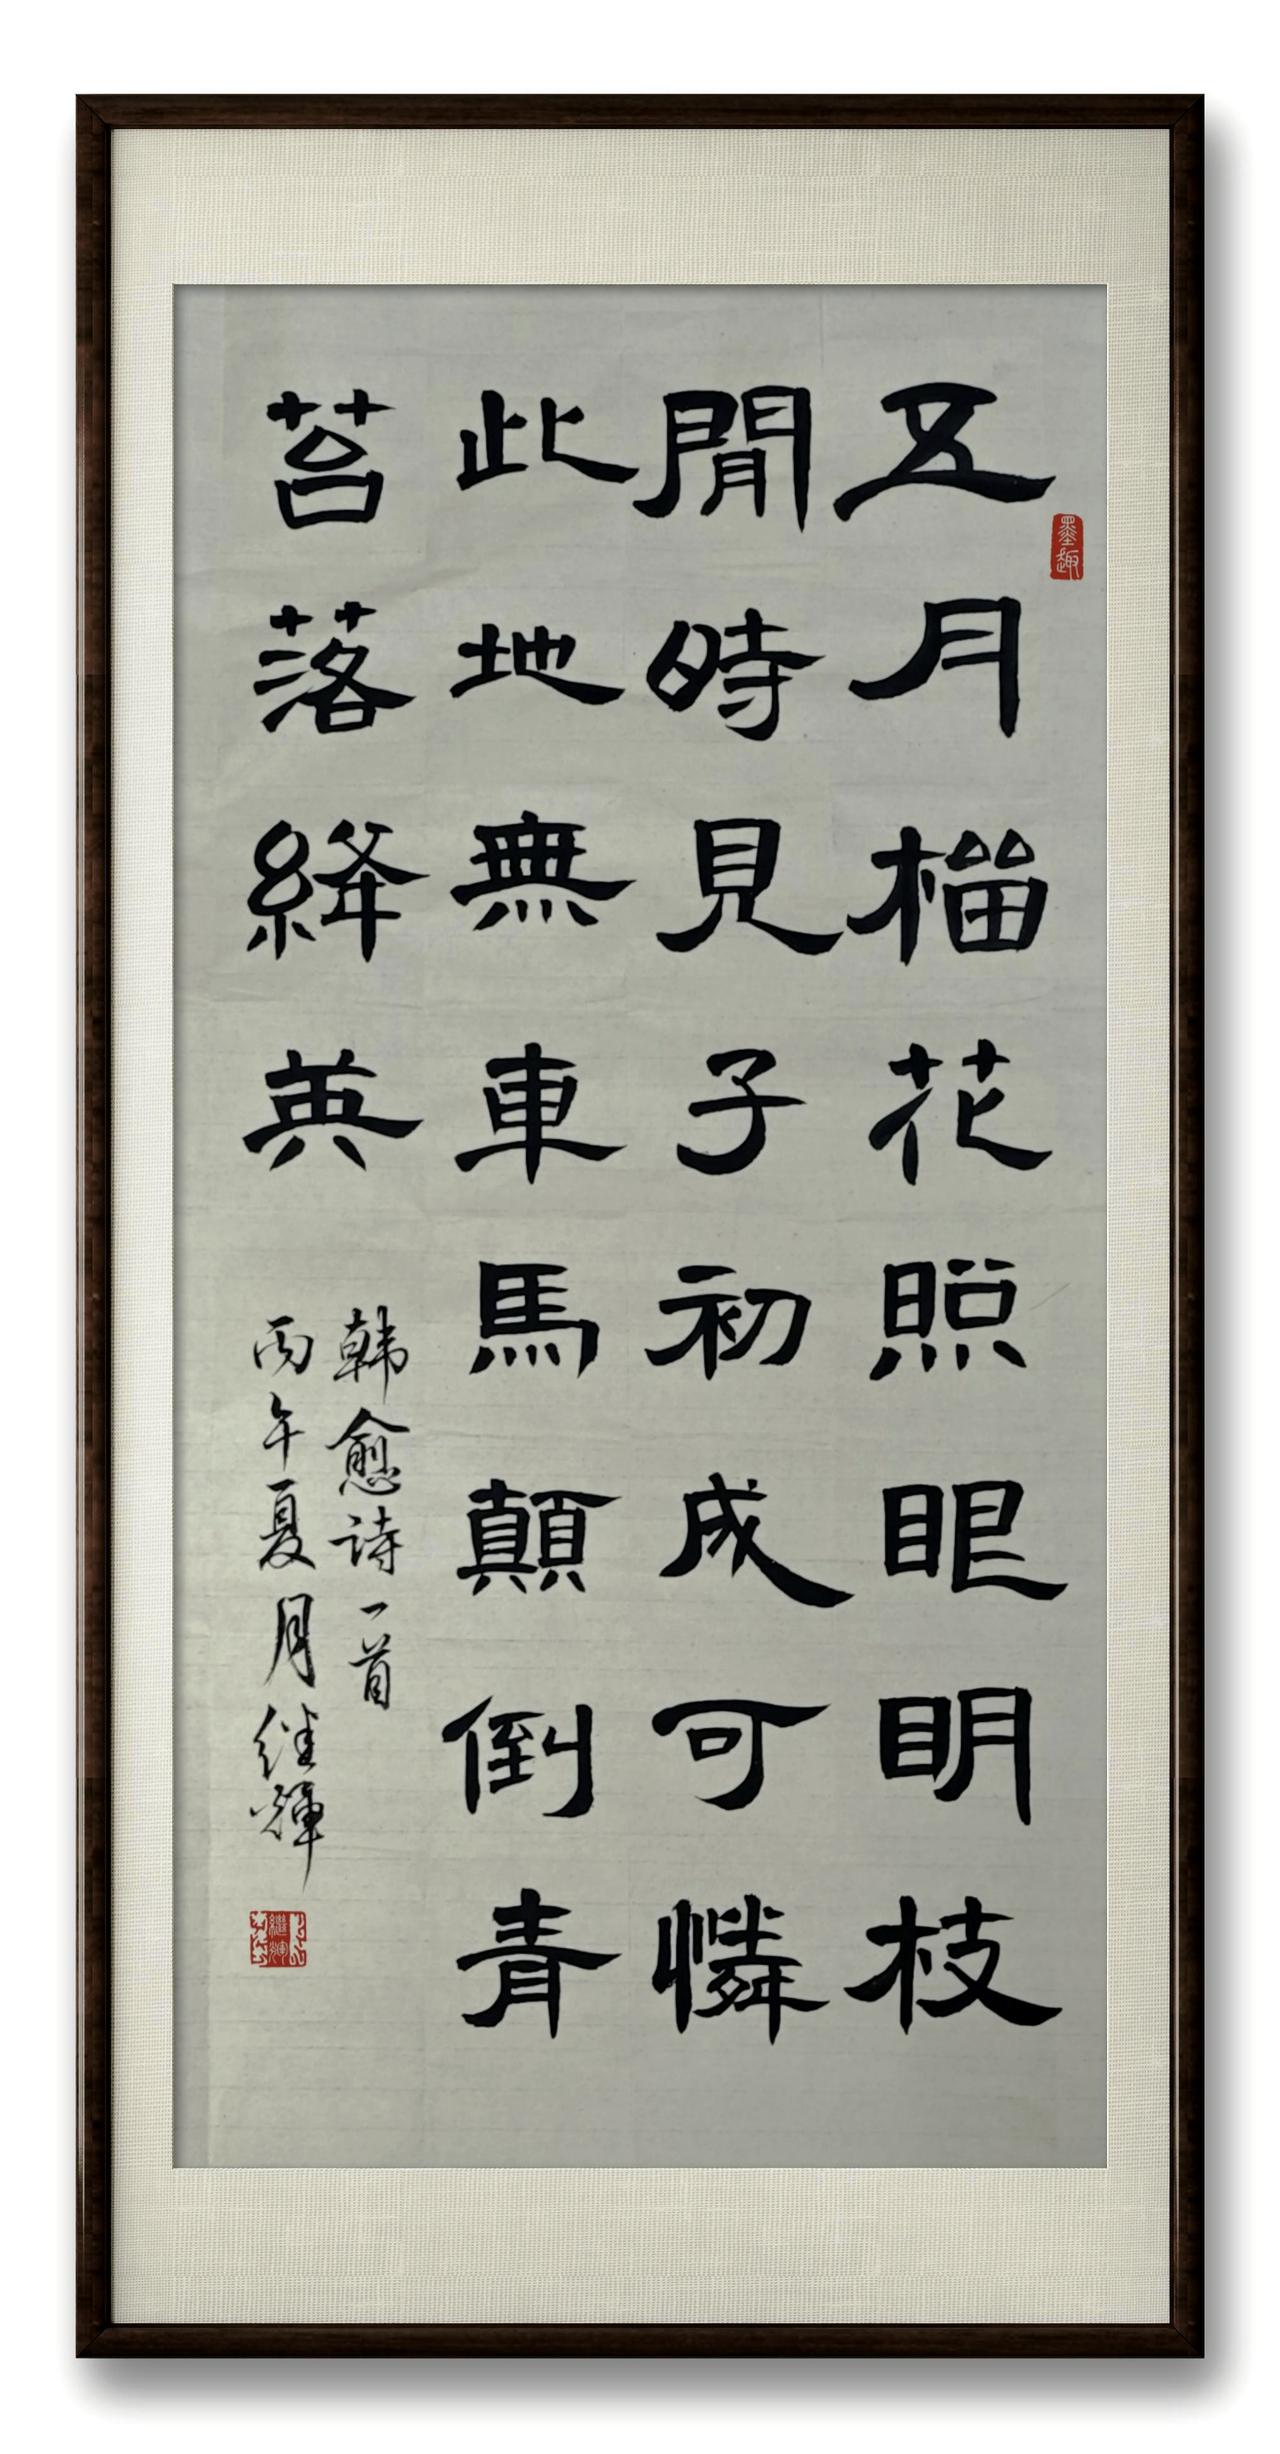 五月榴花照眼明枝
間時見子初成可憐
此地無車馬顛倒青
苔落絳英
韩愈诗一首
丙午夏月继輝
墨趣